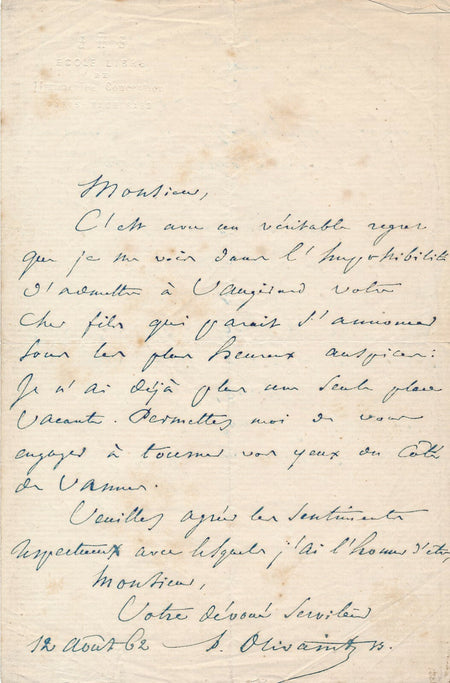 ECOLE LIBRE
DE
Monsieur,
C'est avec un véritable regret
que je me vois dans l'impossibilité
d'admettre à Vaugirard votre
cher fils qui parait s'annoncer
sous les plus heureux auspices :
Je n'ai déjà plus une seule place
vacante. Permettez moi de vous
engager à tourner vos yeux du côté
de Vannes.
Veuillez agréer les sentiments
respectueux avec lesquels j'ai l'honneur d'être,
Monsieur,
Votre dévoué serviteur
12 Août 62 P. Olivaint